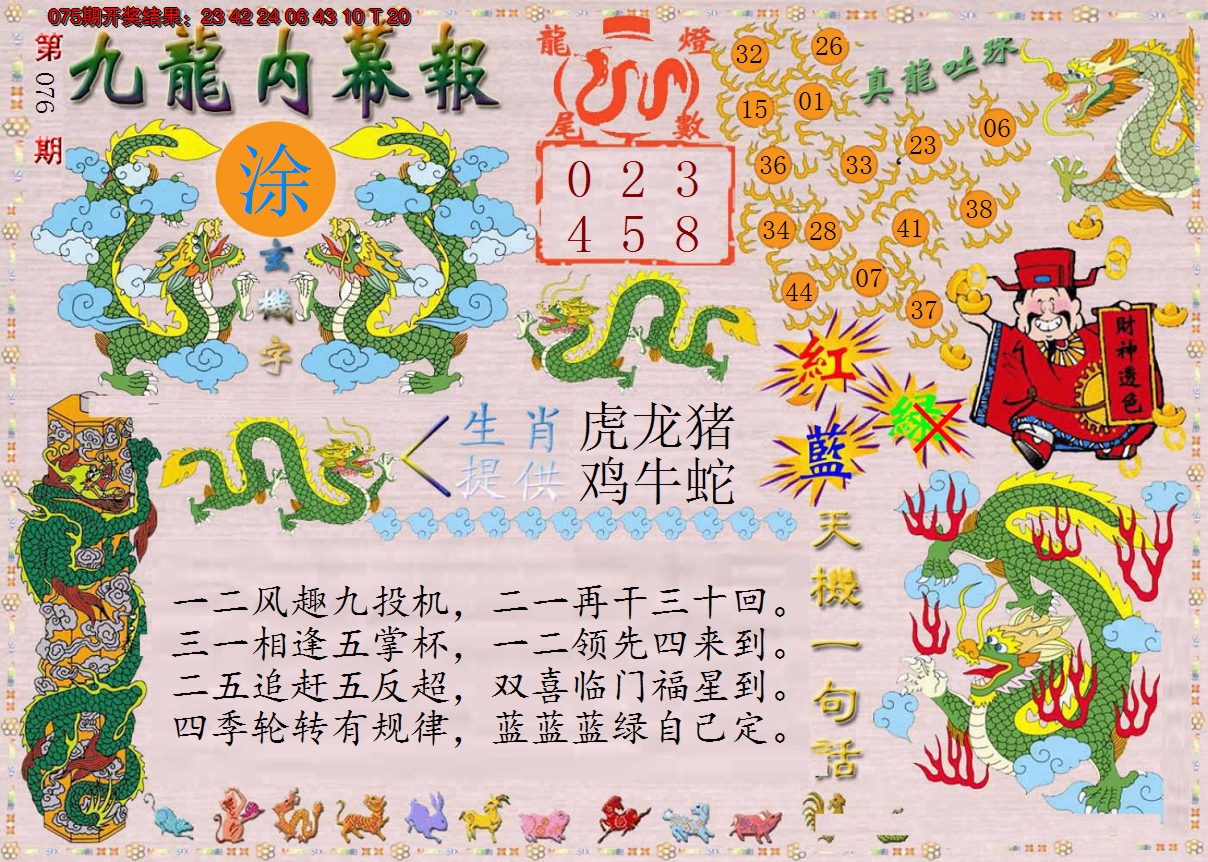 075期开奖结果：23 42 24 06 43 10 T 20
第076期
九龍内幕報
涂
玄機字
龍燈
尾數
0 2 3
4 5 8
真龍吐珠
32 26
15 01
36 33 23 06
34 28 41 38
44 07 37
財神透色
紅
綠
藍
生肖 虎龙猪
提供 鸡牛蛇
天機一句話
一二风趣九投机，二一再干三十回。
三一相逢五掌杯，一二领先四来到。
二五追赶五反超，双喜临门福星到。
四季轮转有规律，蓝蓝蓝绿自己定。